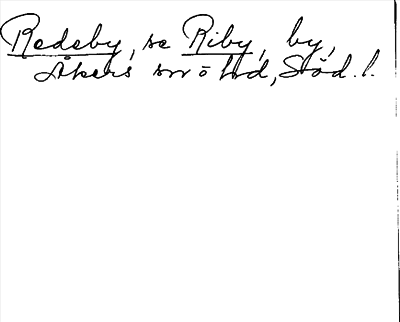 Redeby, se Riby, by,
Åkers sn o hd, Söd. l.